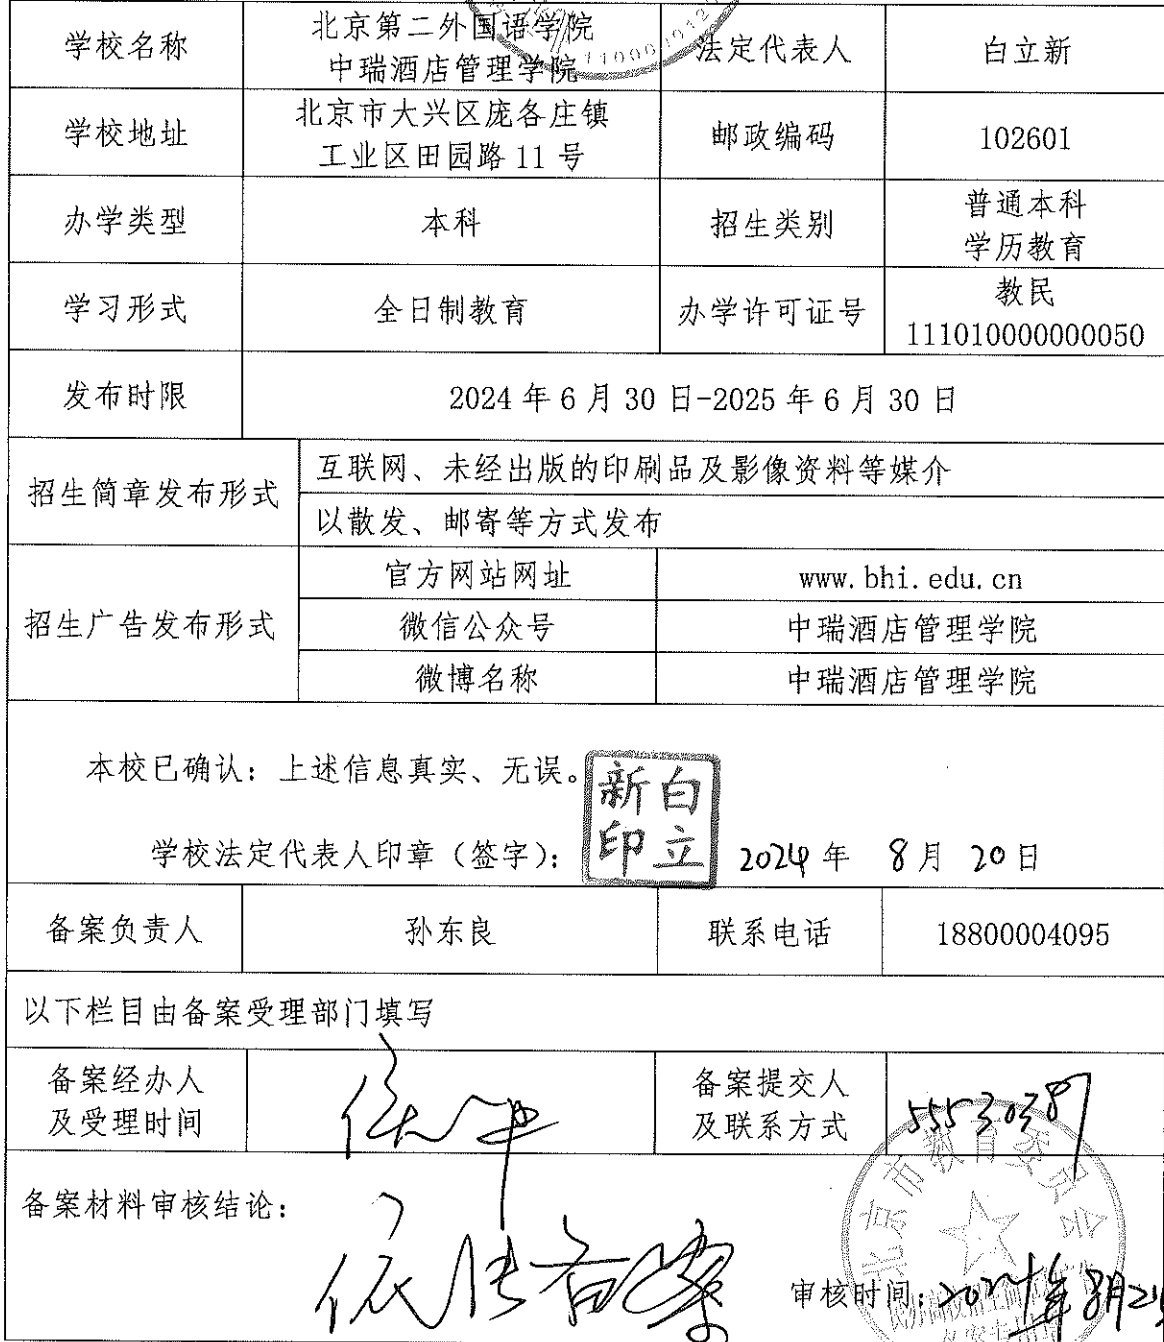 学校名称
北京第二外国语学院
中瑞酒店管理学院
法定代表人
白立新
学校地址
北京市大兴区庞各庄镇
工业区田园路 11 号
邮政编码
102601
办学类型
本科
招生类别
普通本科
学历教育
学习形式
全日制教育
办学许可证号
教民
111010000000050
发布时限
2024 年 6 月 30 日-2025 年 6 月 30 日
招生简章发布形式
互联网、未经出版的印刷品及影像资料等媒介
以散发、邮寄等方式发布
招生广告发布形式
官方网站网址
www.bhi.edu.cn
微信公众号
中瑞酒店管理学院
微博名称
中瑞酒店管理学院
本校已确认：上述信息真实、无误。
学校法定代表人印章（签字）：
新白
印立
2024 年 8 月 20 日
备案负责人
孙东良
联系电话
18800004095
以下栏目由备案受理部门填写
备案经办人
及受理时间
备案提交人
及联系方式
55530387
北京市教育委员会
备案材料审核结论：
依法备案
审核时间：2024年8月2